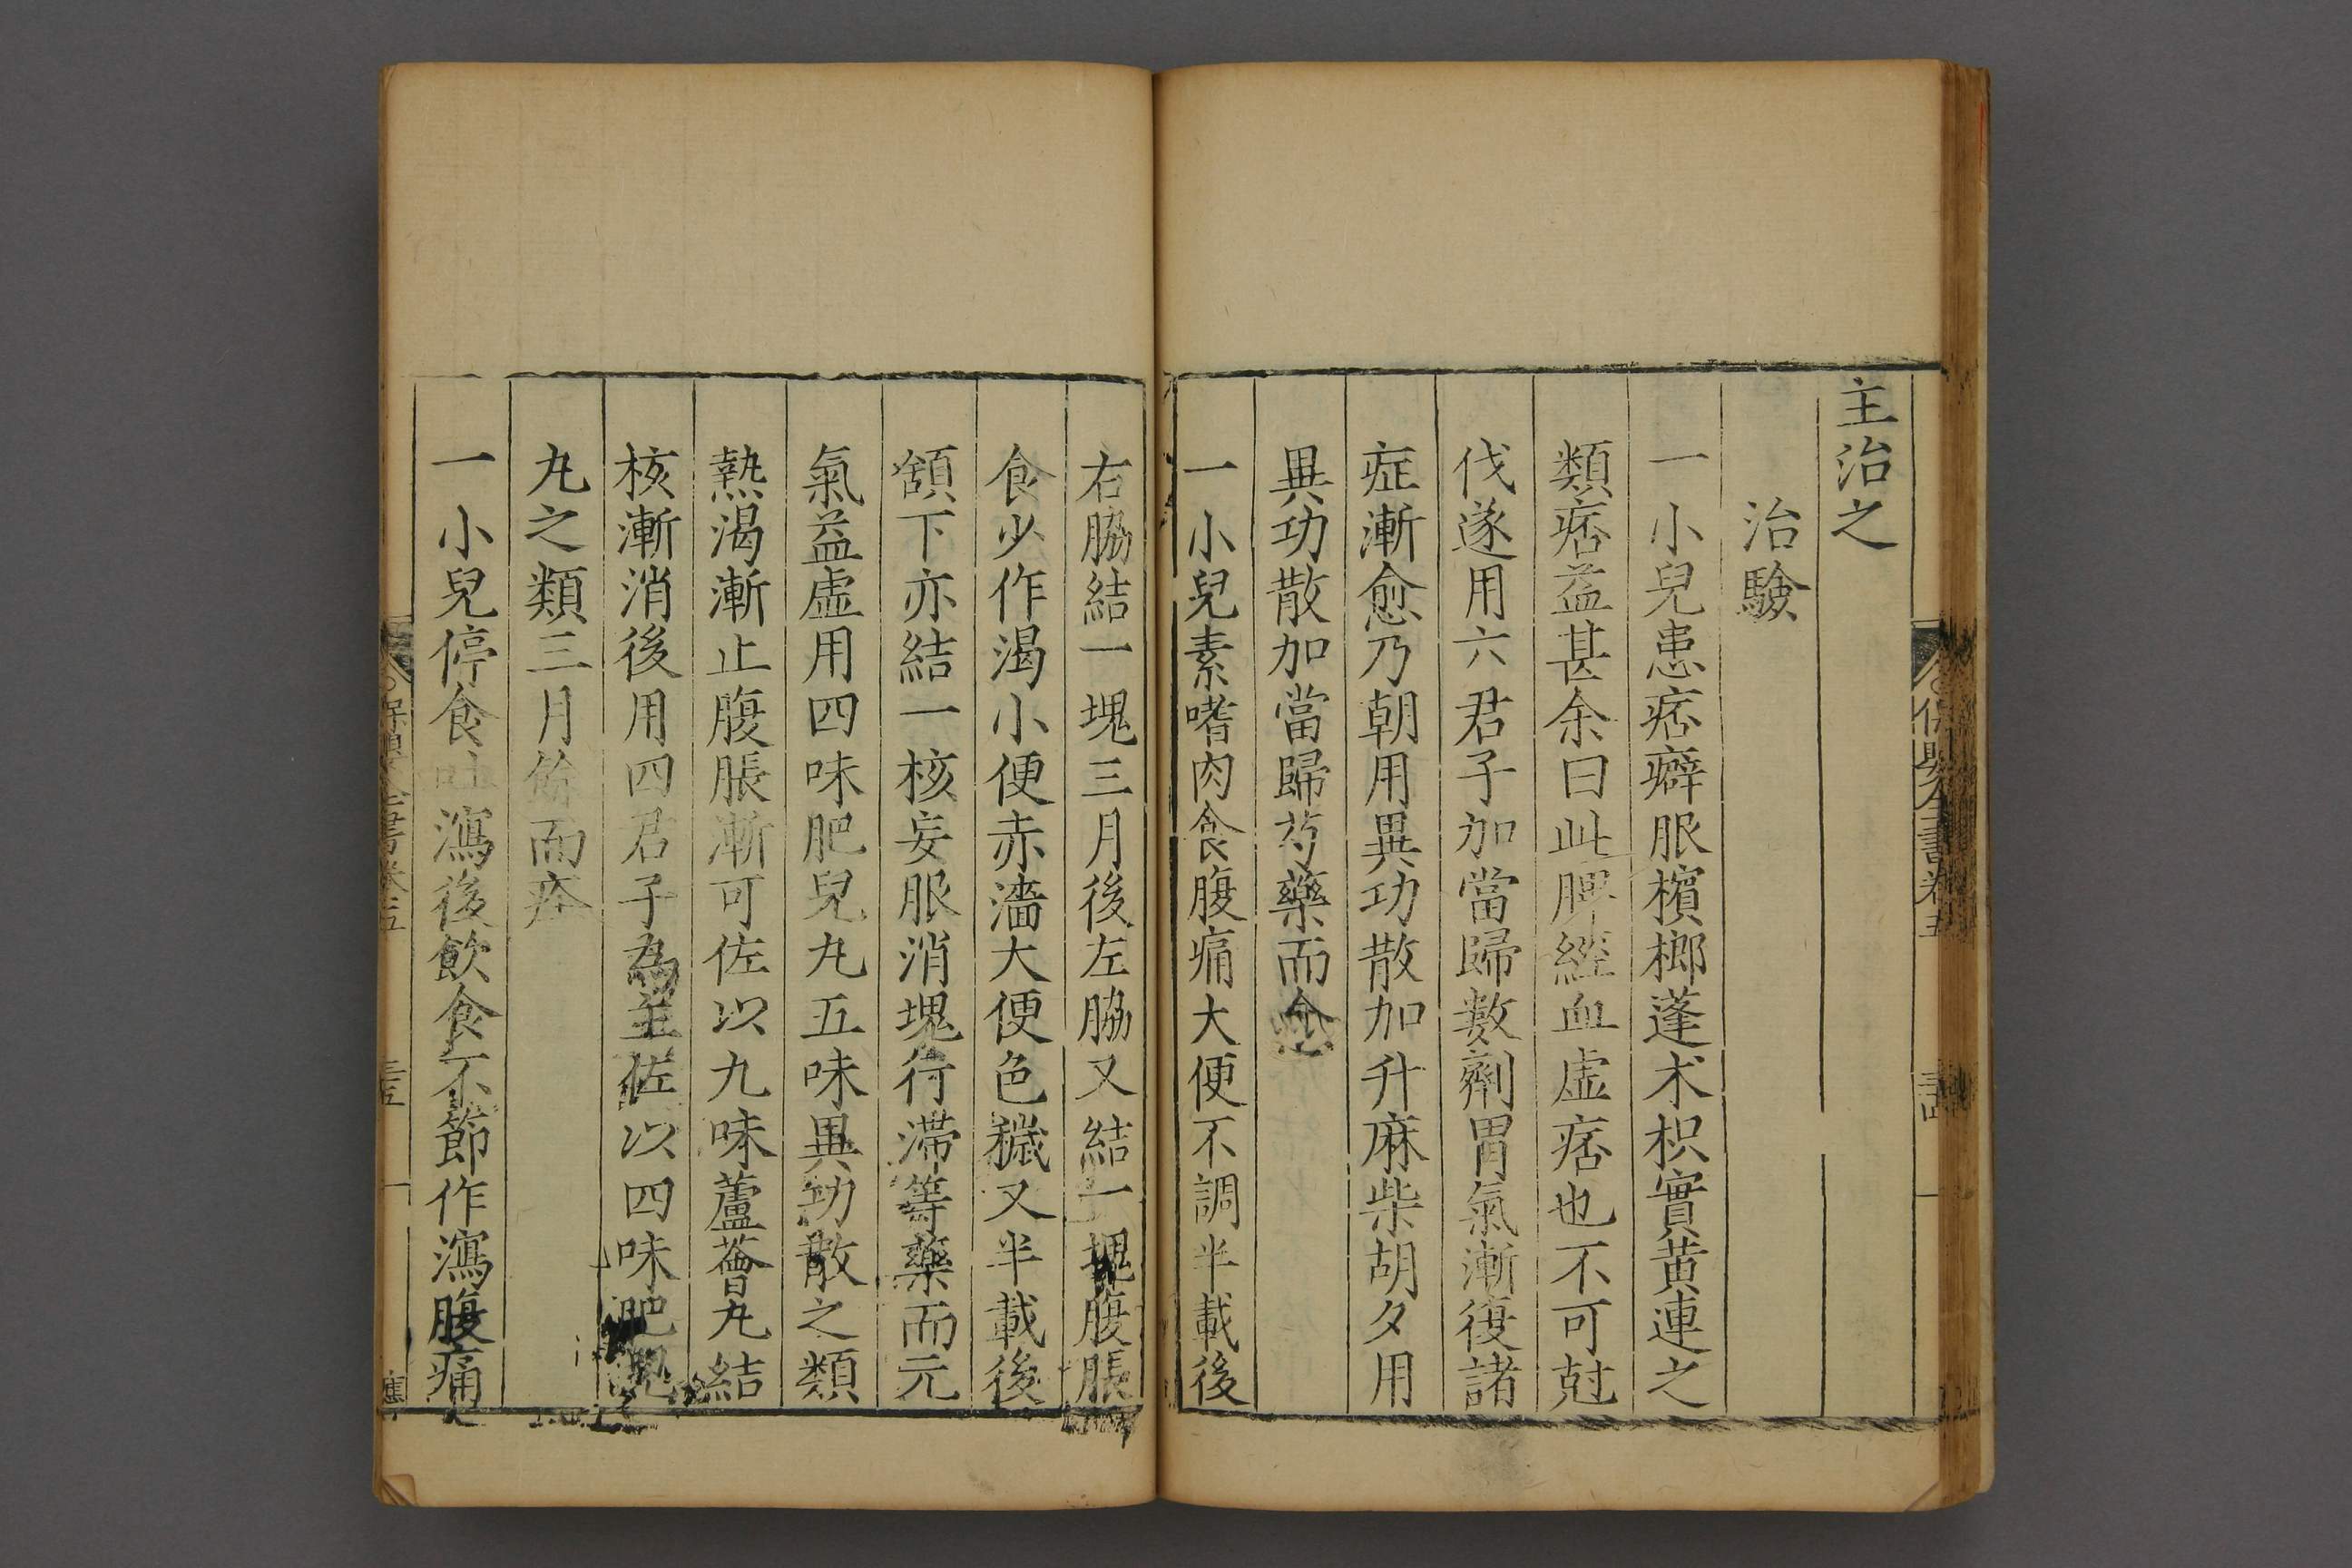 主治之
治驗
一小兒患痞癖服檳榔蓬朮枳實黄連之
類痞益甚余曰此脾經血虚痞也不可尅
伐遂用六君子加當歸數劑胃氣漸復諸
症漸愈乃朝用異功散加升麻柴胡夕用
異功散加當歸芍藥而愈
一小兒素嗜肉食腹痛大便不調半載後
右脇結一塊三月後左脇又結一塊腹脹
食少作渴小便赤濇大便色穢又半載後
頷下亦結一核妄服消塊行滯等藥而元
氣益虚用四味肥兒丸五味異功散之類
熱渴漸止腹脹漸可佐以九味蘆薈丸結
核漸消後用四君子為主佐以四味肥兒
丸之類三月餘而痊
一小兒停食吐瀉後飲食不節作瀉腹痛
保嬰全書卷五